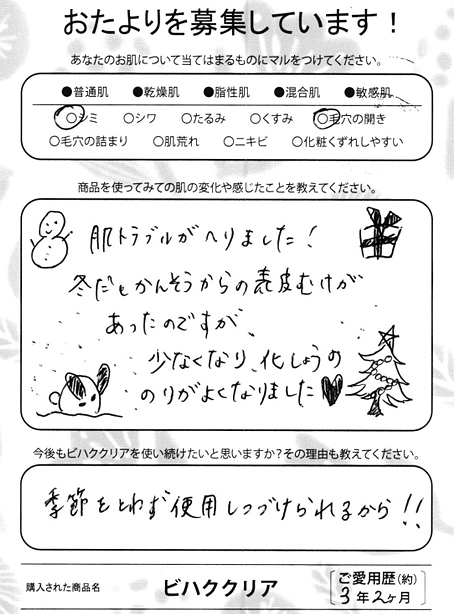 おたよりを募集しています！
あなたのお肌について当てはまるものにマルをつけてください。
●普通肌 ●乾燥肌 ●脂性肌 ●混合肌 ●敏感肌
○シミ ○シワ ○たるみ ○くすみ ○毛穴の開き
○毛穴の詰まり ○肌荒れ ○ニキビ ○化粧くずれしやすい
商品を使ってみての肌の変化や感じたことを教えてください。
肌トラブルがへりました！
冬だとかんそうからの表皮むけが
あったのですが、
少なくなり、化しょうの
のりがよくなりました♥
今後もビハククリアを使い続けたいと思いますか？その理由も教えてください。
季節をとわず使用しつづけられるから!!
購入された商品名 ビハククリア
ご愛用歴(約)
3年2ヶ月